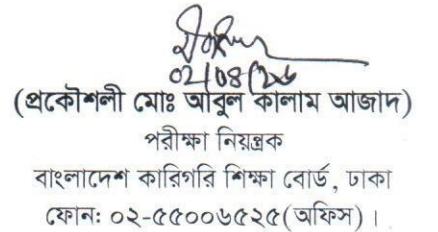 02/08/26
(প্রকৌশলী মোঃ আবুল কালাম আজাদ)
পরীক্ষা নিয়ন্ত্রক
বাংলাদেশ কারিগরি শিক্ষা বোর্ড, ঢাকা
ফোন: ০২-৫৫০০৬৫২৫(অফিস)।